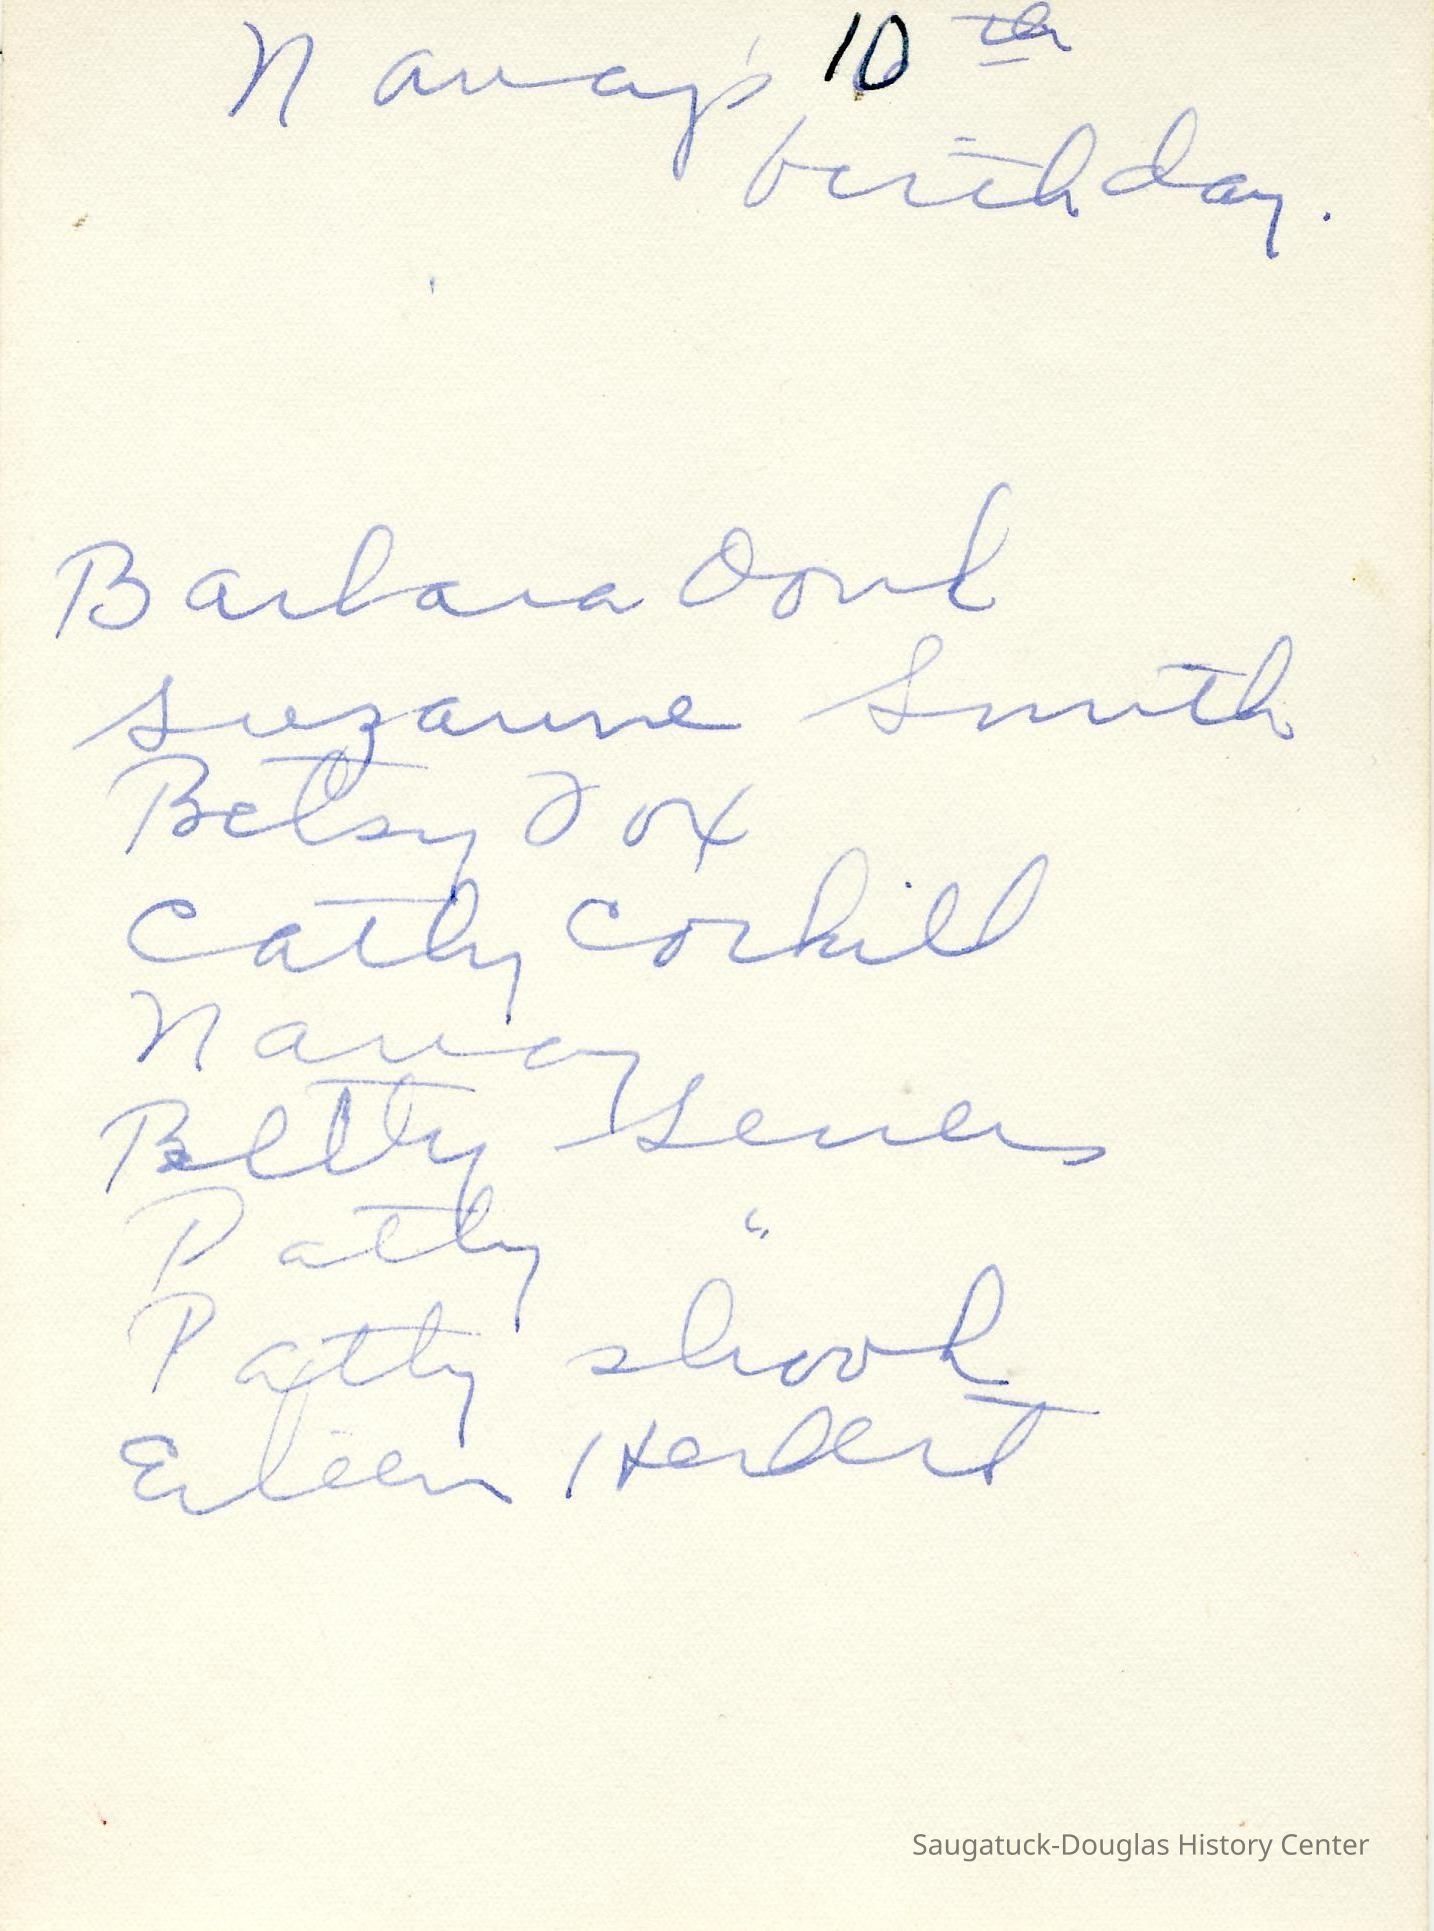 Nancy's 10th
birthday.
Barbara
Suzanne Smith
Betsy Fox
Cathy Corkill
Nancy
Betty
Patty "
Patty Shook
Eileen Herbert
Saugatuck-Douglas History Center